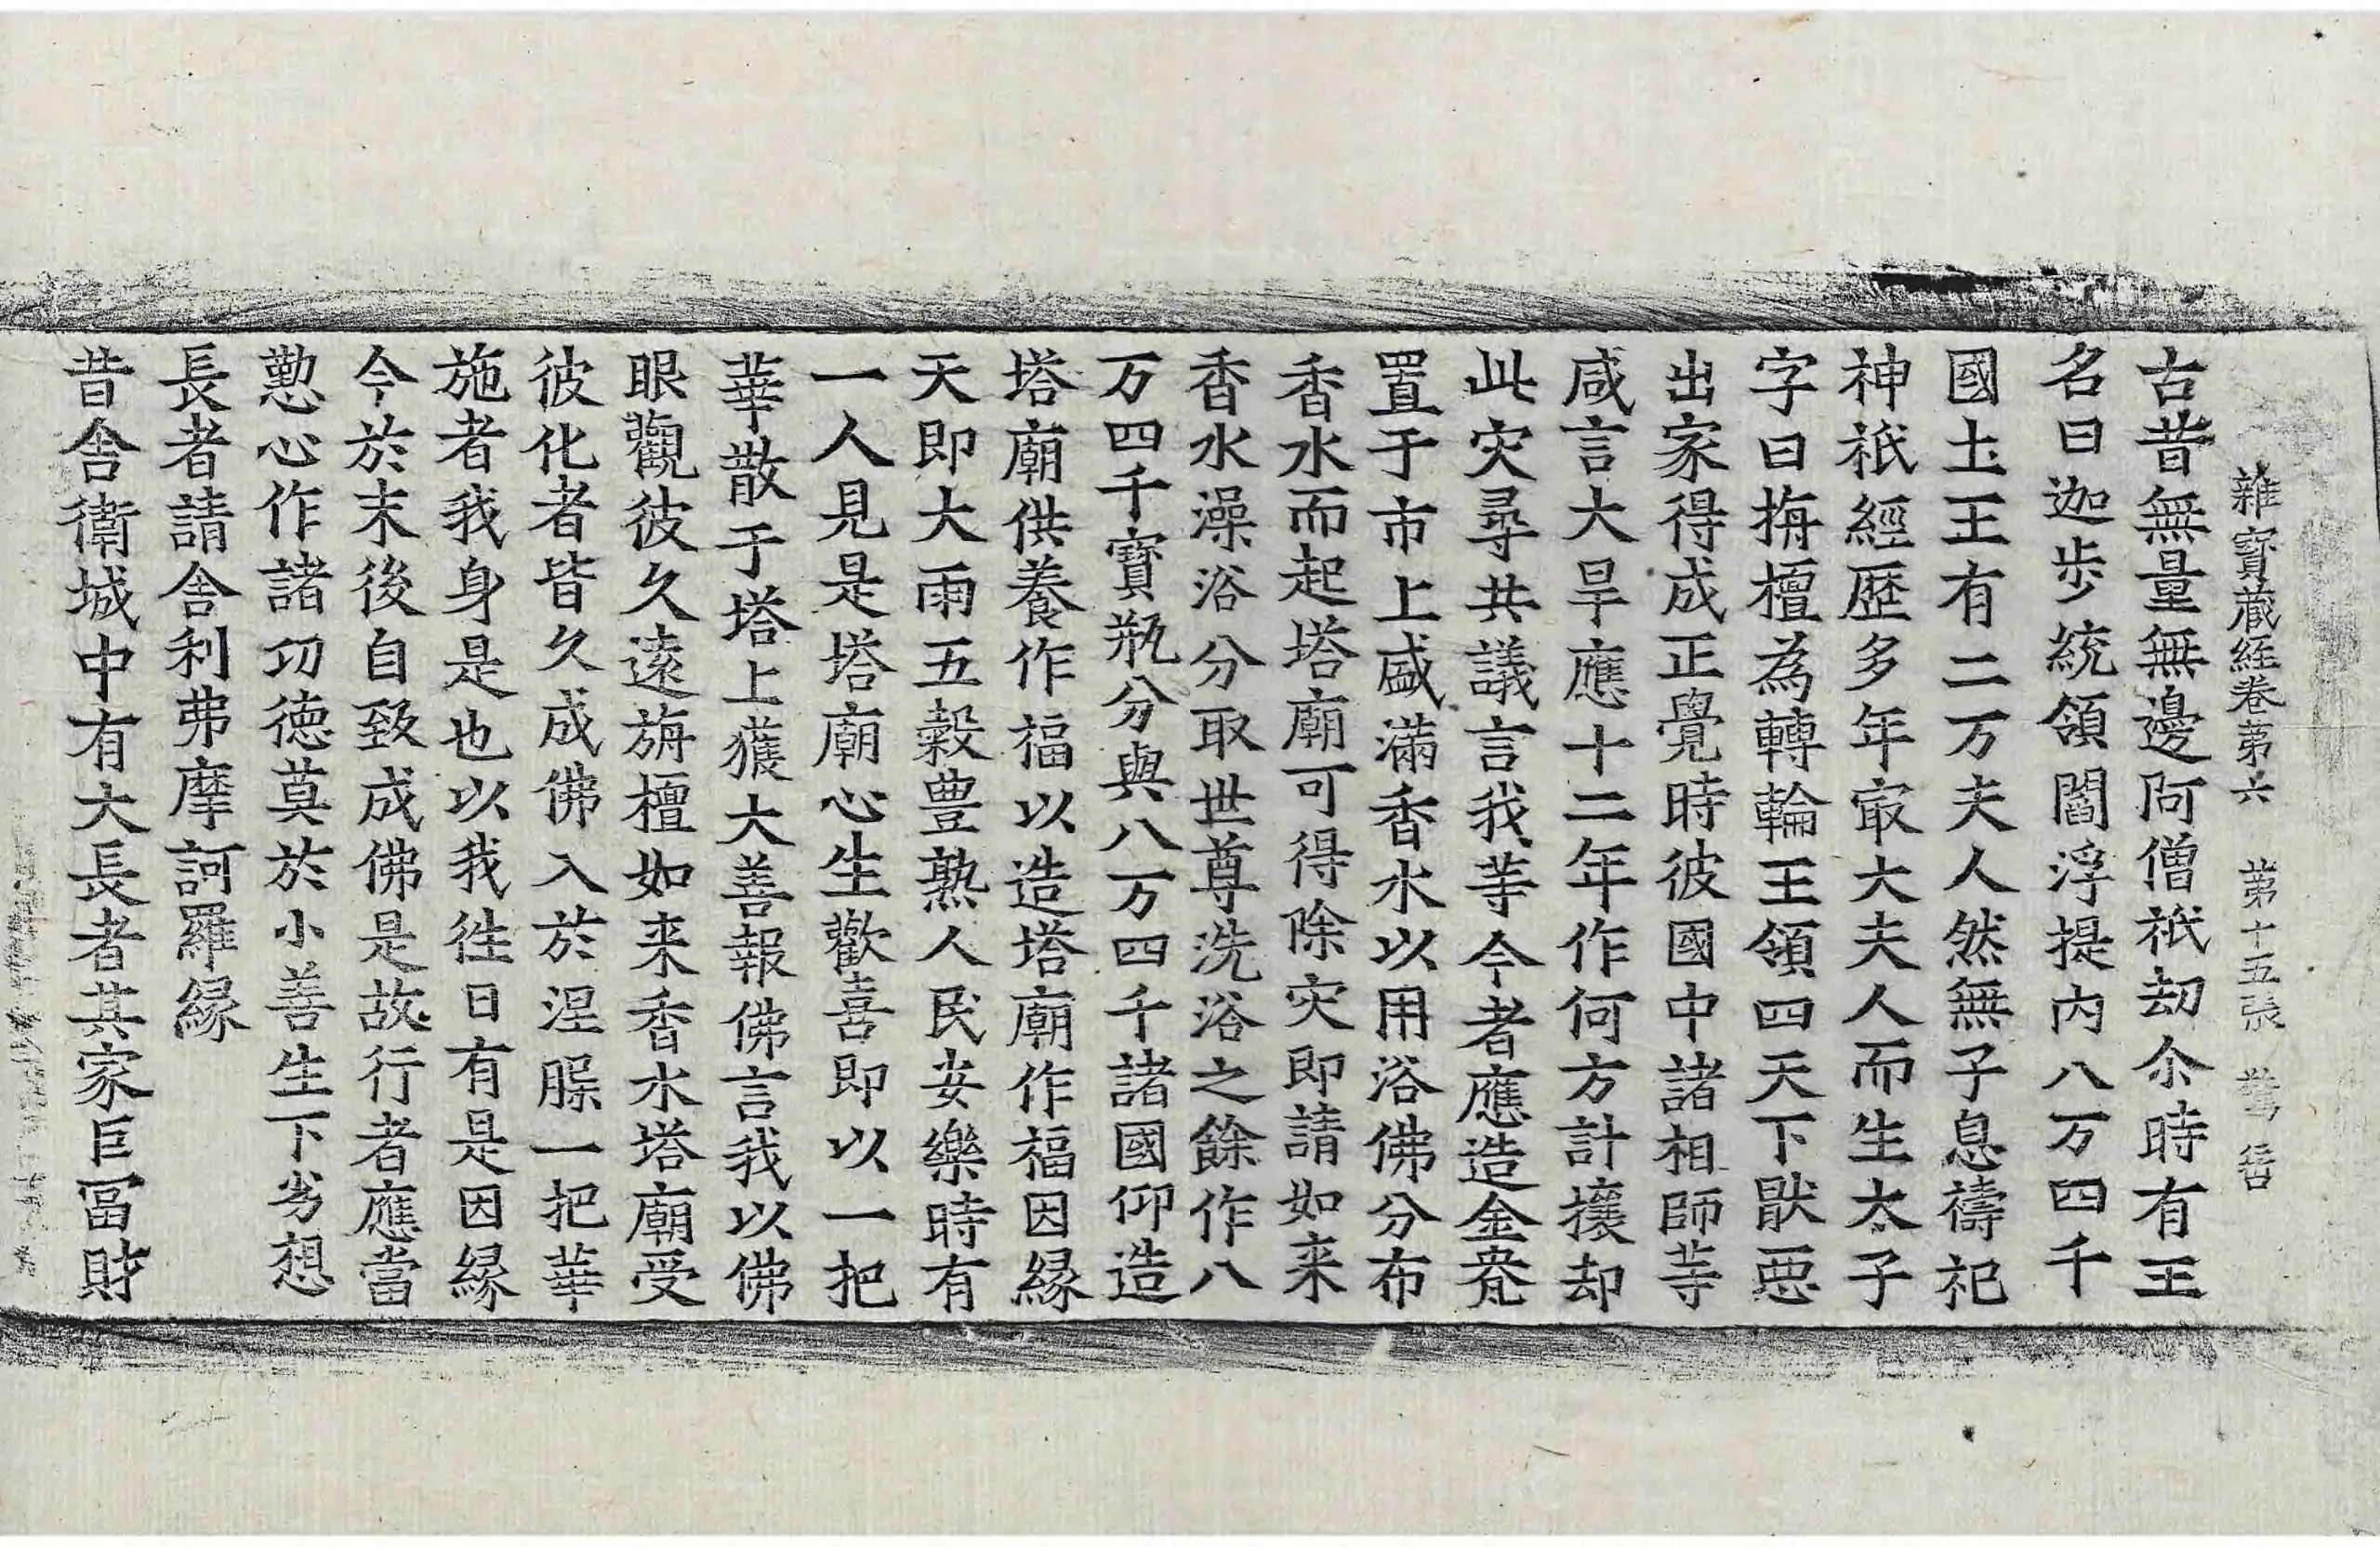 雜寶藏經卷第六 第十五張
古昔無量無邊阿僧祇劫尒時有王
名曰迦步統領閻浮提內八万四千
國土王有二万夫人然無子息禱祀
神祇經歷多年㝡大夫人而生太子
字曰栴檀為轉輪王領四天下猒惡
出家得成正覺時彼國中諸相師䓁
咸言大旱應十二年作何方計攘却
此灾尋共議言我䓁今者應造金瓮
置于市上盛滿香水以用浴佛分布
香水而起塔廟可得除灾即請如来
香水澡浴分取世尊洗浴之餘作八
万四千寶瓶分與八万四千諸國仰造
塔廟供養作福以造塔廟作福因緣
天即大雨五穀豊熟人民安樂時有
一人見是塔廟心生歡喜即以一把
華散于塔上獲大善報佛言我以佛
眼觀彼久遠旃檀如来香水塔廟受
彼化者皆久成佛入於涅槃一把華
施者我身是也以我徃日有是因緣
今於末後自致成佛是故行者應當
懃心作諸功德莫於小善生下劣想
長者請舍利弗摩訶羅緣
昔舍衛城中有大長者其家巨冨財